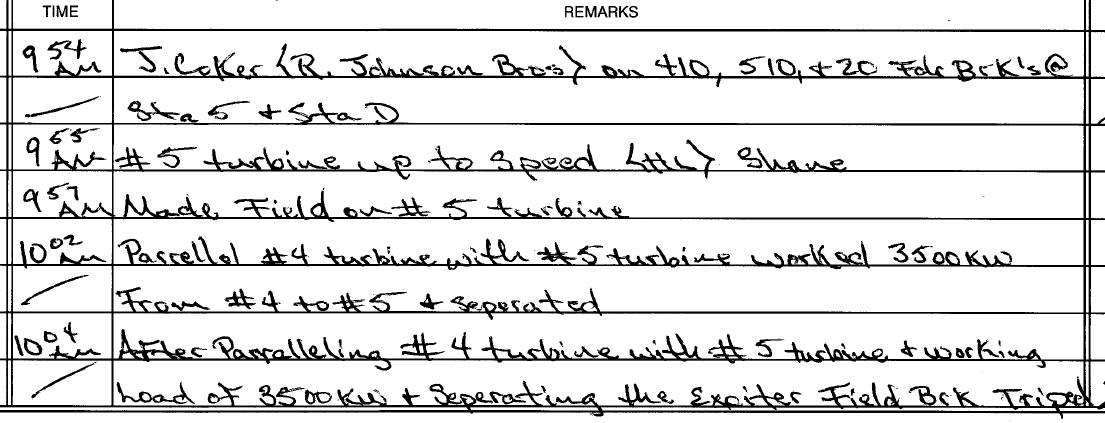 TIME REMARKS
9 54 AM J. Coker <R. Johnson Bros> on 410, 510, + 20 Fdr Brk's @
Sta 5 + Sta D
9 55 AM # 5 turbine up to speed Shane
9 57 AM Made Field on # 5 turbine
10 02 AM Parrellel #4 turbine with #5 turbine worked 3500 KW
From #4 to #5 + seperated
10 04 AM After Parralleling # 4 turbine with # 5 turbine + working
Load of 3500 KW + Seperating the Exciter Field Brk Triped